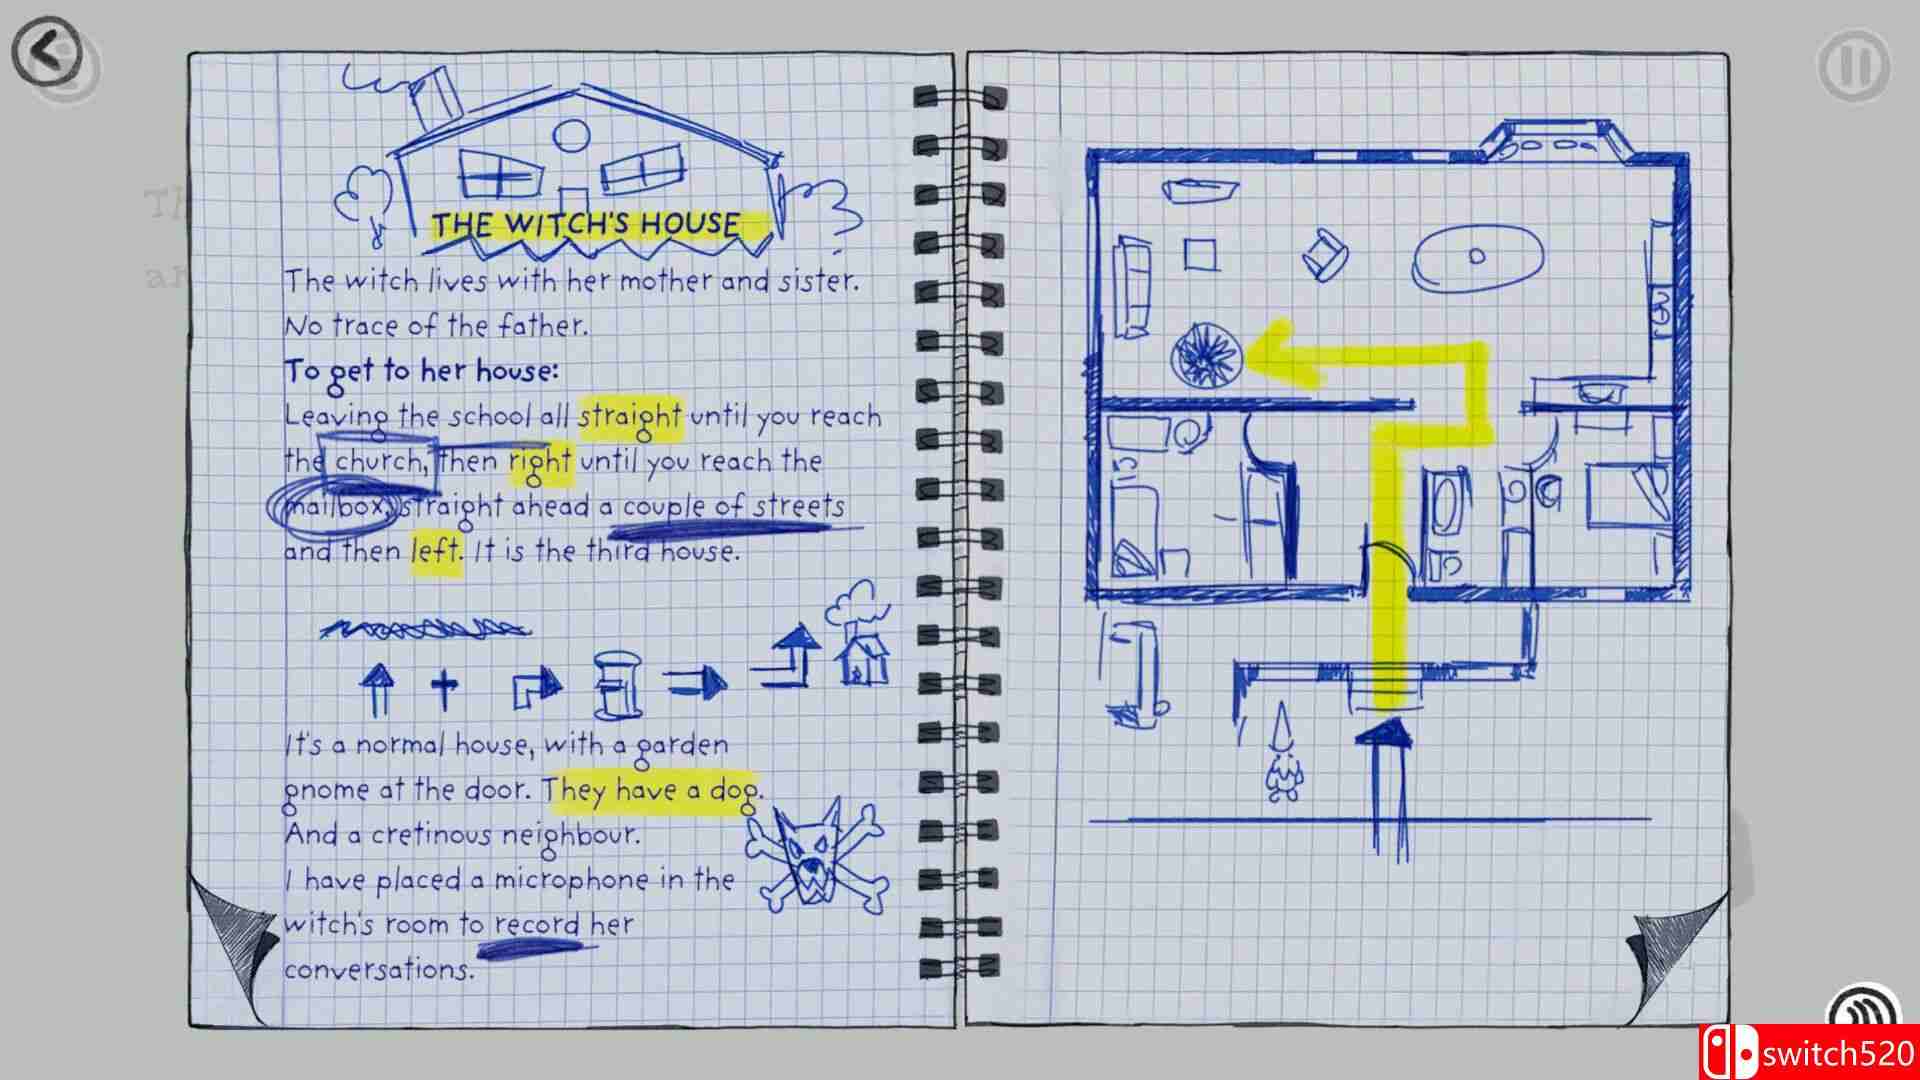 THE WITCH'S HOUSE
The witch lives with her mother and sister.
No trace of the father.
To get to her house:
Leaving the school all straight until you reach
the church, then right until you reach the
mailbox, straight ahead a couple of streets
and then left. It is the third house.
It's a normal house, with a garden
gnome at the door. They have a dog.
And a cretinous neighbour.
I have placed a microphone in the
witch's room to record her
conversations.
switch520